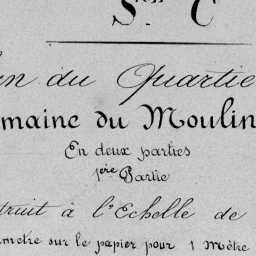 Son C
an du Quartie
maine du Moulin
En deux parties
1ère Partie
truit à l'Echelle de
mètre sur le papier pour 1 Mètre